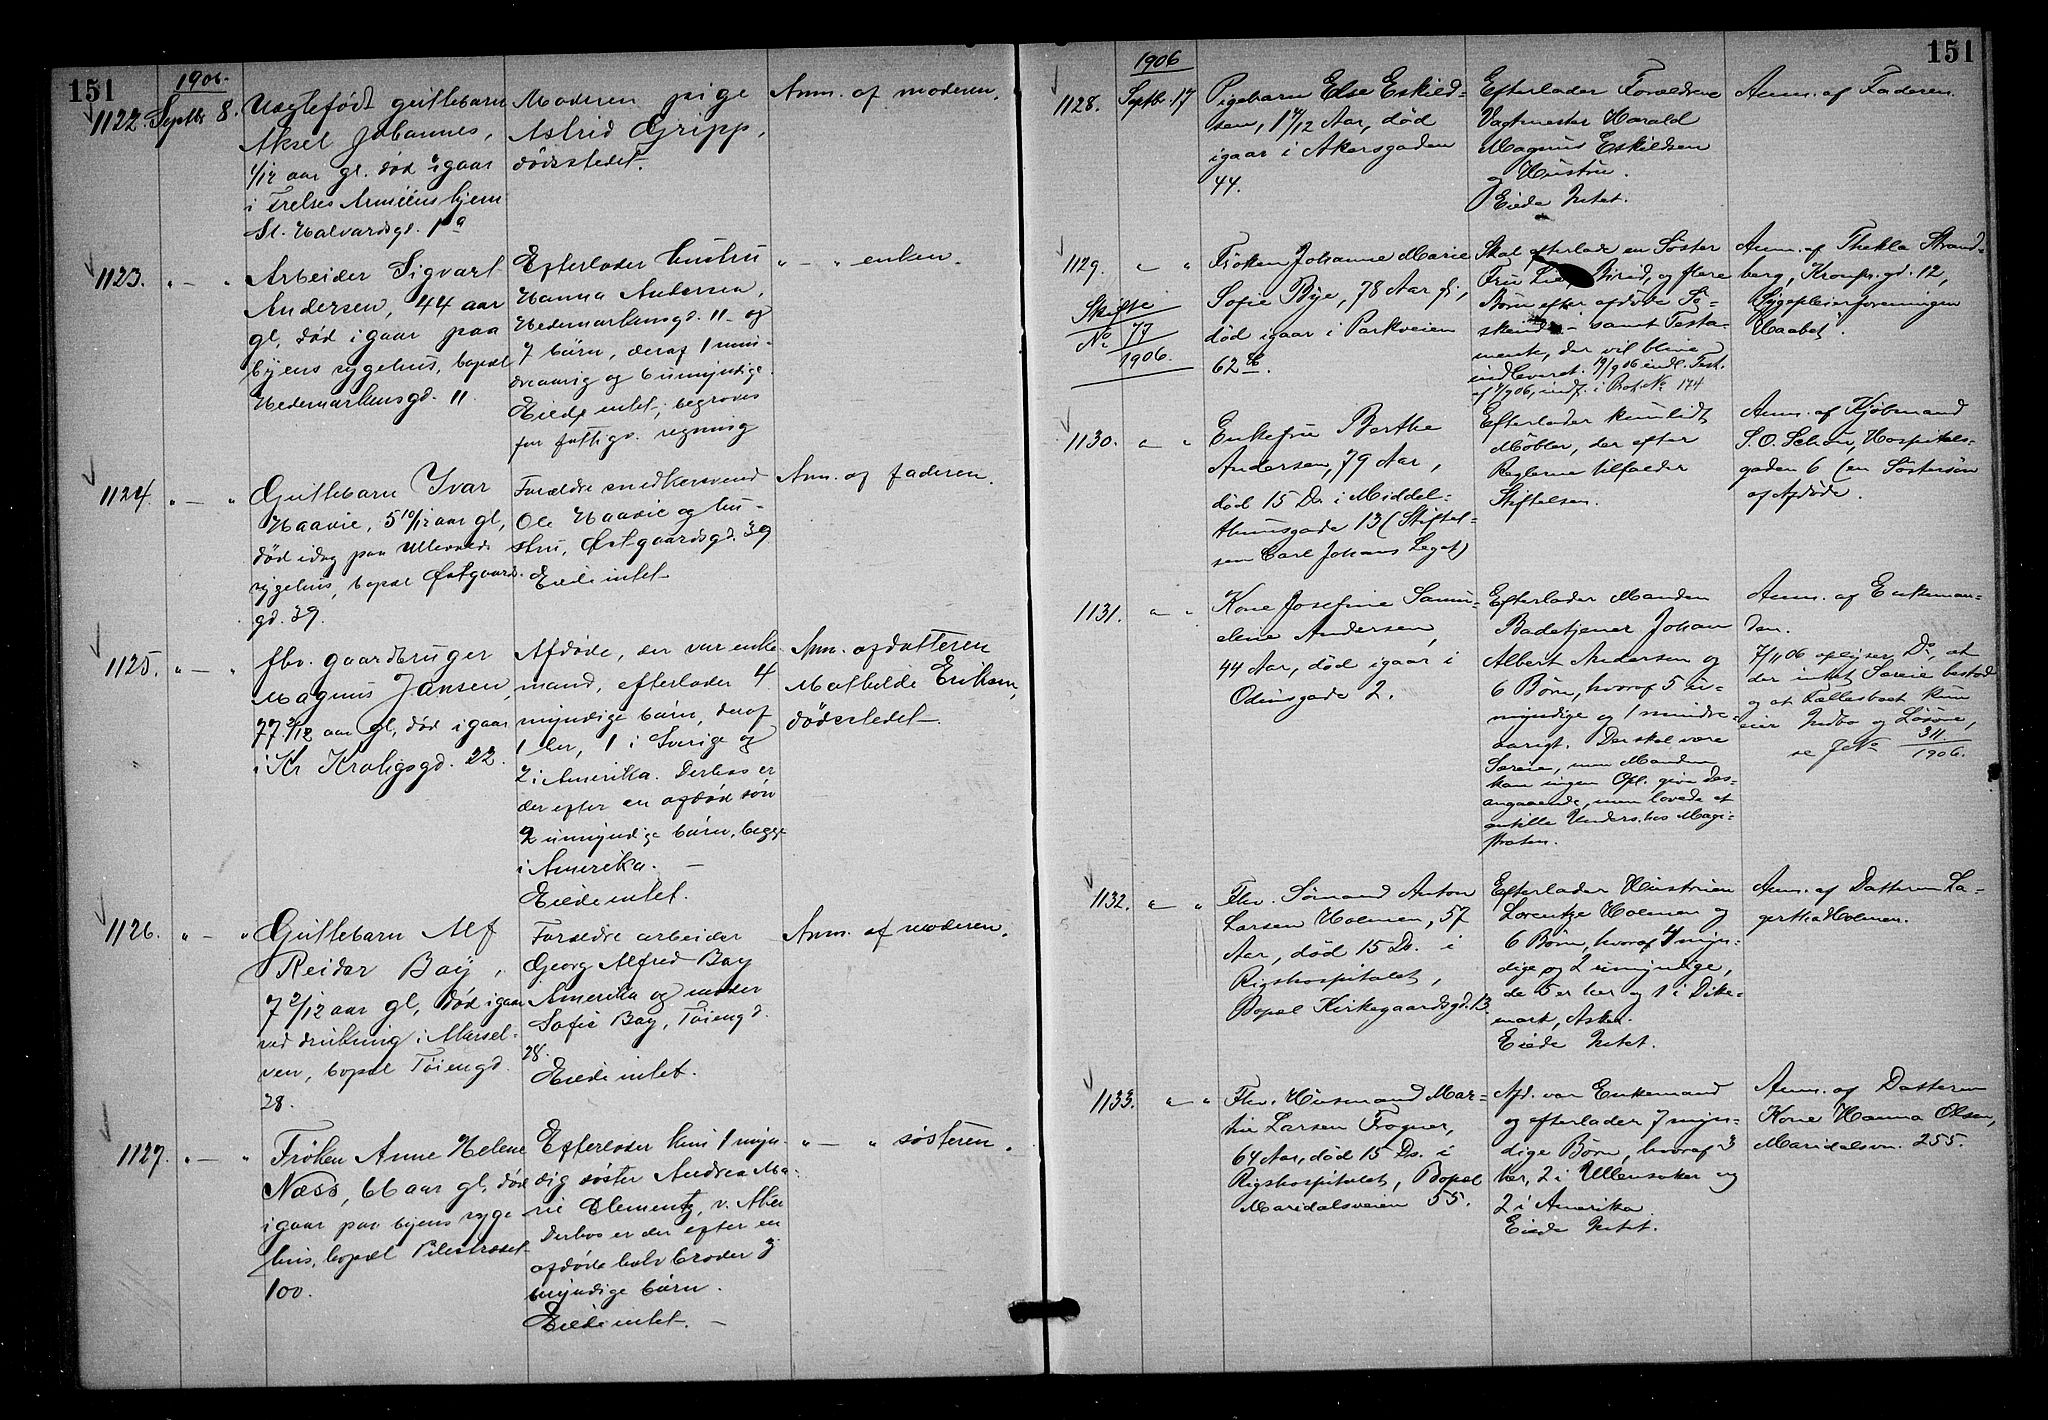 151
1906.
1122. Septbr 8. Uægtefødt guttebarn
Aksel Johannes,
1/12 aar gl. død igaar
i Frelses Armeens hjem
St. Halvardsgd. 1 a
Moderen pige
Astrid Gripp,
dødsstedet.
Anm. af moderen.
1123. " — " Arbeider Sigvart
Andersen, 44 aar
gl, død igaar paa
byens sygehus, bopæl
Hedemarkensgd. 11
Efterlader hustru
Hanna Andersen,
Hedemarkensgd. 11 og
7 børn, deraf 1 min-
dreaarig og 6 umyndige.
Eiede intet, begraves
for fattigv. regning
" — " enken.
1124. " — " Guttebarn Ivar
Haavie, 5 10/12 aar gl,
død idag paa Ullevaals
sygehus, bopæl Østgaards
gd. 39.
Forældre snedkersvend
Ole Haavie og hu-
stru, Østgaardsgd. 39
Eiede intet
Anm. af faderen.
1125. " — " fhv. gaardbruger
Magnus Jansen,
77 2/12 aar gl, død igaar
i Kr Krohgsgd. 22.
Afdøde, der var enke-
mand, efterlader 4
myndige børn, deraf
1 her, 1 i Sverige og
2 i Amerika. Desuds er
der efter en afdød søn
2 umyndige børn, begge
i Amerika. —
Eiede intet.
Anm. af datteren
Mathilde Eriksen,
dødsstedet.
1126. " — " Guttebarn Alf
Reidar Bay,
7 2/12 aar gl, død igaar
ved drukning i Akersel-
ven, bopæl Tøiengd.
28.
Forældre arbeider
Georg Alfred Bay
Amerika og moder
Sofie Bay, Tøiengd.
28.
Eiede intet.
Anm. af moderen.
1127. " — " Frøken Anne Helene
Næss, 66 aar gl, død
igaar paa byens syge
hus, bopæl Pilestrædet
100.
Efterlader kun 1 myn-
dig søster Andrea Ma-
rie Clementz, v. Aker
Desuds er der efter en
afdøde halv broder
myndige børn.
Eiede intet. —
" — " søsteren.
151
1906
1128. Septbr. 17 Pigebarn Else Eskild-
sen, 1 11/12 Aar, død
igaar i Akersgaden
44.
Efterlader Forældrene
Vagtmester Harald
Magnus Eskildsen
og Hustru.
Eiede Intet.
Anm. af Faderen.
1129. " "
Skifte
No 77
1906.
Frøken Johanne Marie
Sofie Bye, 78 Aar gl,
død igaar i Parkveien
62 b.
Skal efterlade en Søster
Fru Birid, og flere
Børn efter afdøde Sø-
skende — samt Testa-
mente, der vil blive
indleveret. 19/9 06 indl. Test.
af 4/9 06, indf. i Prot. No 174
Anm. af Thekla Strand-
berg, Kronpr. gd. 12,
Sygepleierforeningen
"Haabet".
1130. " " Enkefru Berthe
Andersen, 79 Aar,
død 15 Ds. i Middel-
thunsgade 13 (Stiftel-
sen Carl Johans Legat)
Efterlader kun lidt
Møbler, der efter
Reglerne tilfalder
Stiftelsen.
Anm. af Kjøbmand
S. O. Schou, Hospitals-
gaden 6 (en Søstersøn
af Afdøde.
1131. " " Kone Josefine Samu-
eline Andersen,
44 Aar, død igaar i
Odinsgade 2.
Efterlader Manden
Badetjener Johan
Albert Andersen og
6 Børn, hvoraf 5 u-
myndige og 1 mindre-
aarigt. Der skal være
Særeie, men Manden
kan ingen Opl. give des-
angaaende, men lovede at
anstille Unders. hos Magi-
straten.
Anm. af Enkeman-
den.
7/11 06 oplyser Do, at
der intet Særeie bestod
og at Fællesboet kun
eier Indbo og Løsøre,
se J. No 311
1906.
1132. " " Fhv. Sømand Anton
Larsen Holmen, 57
Aar, død 15 Ds. i
Rigshospitalet,
Bopæl Kirkegaardsgd. 13.
Efterlader Hustruen
Lorentze Holmen og
6 Børn, hvoraf 4 myn-
dige og 2 umyndige,
de 5 er her og 1 i Dike-
mark, Asker.
Eiede Intet.
Anm. af Datteren La-
gertha Holmen.
1133. " " Fhv. Husmand Mar-
thin Larsen Frogner,
64 Aar, død 15 Ds. i
Rigshospitalet, Bopæl
Maridalsveien 55.
Afd. var Enkemand
og efterlader 7 myn-
dige Børn, hvoraf 3
her, 2 i Ullensaker og
2 i Amerika.
Eiede Intet.
Anm. af Datteren
Kone Hanna Olsen,
Maridalsvn. 255